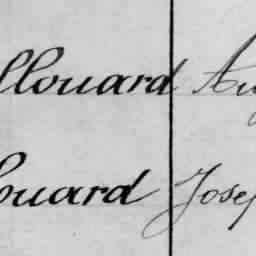 llouard Au
ouard Josep